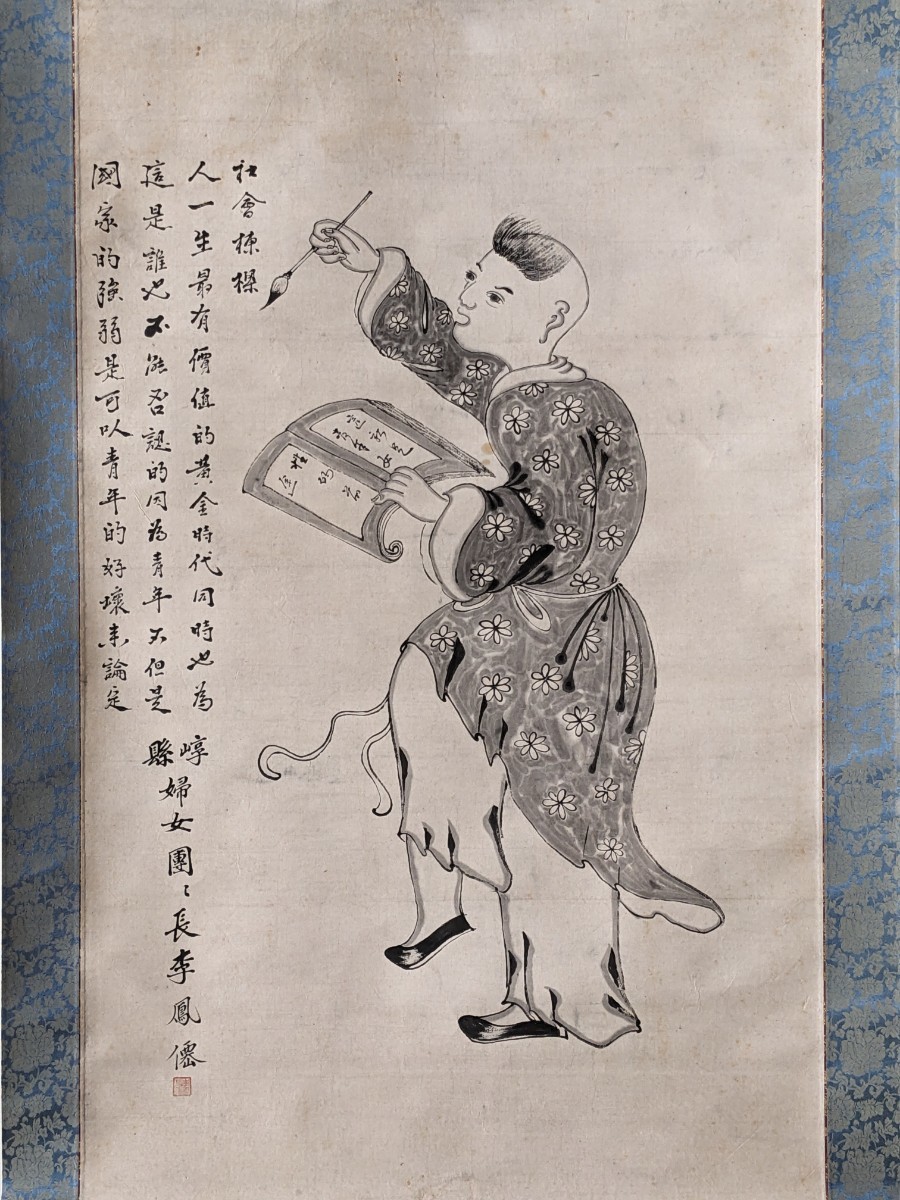 社會棟樑
人一生最有價值的黃金時代同時也為
這是誰也不能否認的因為青年不但是
國家的強弱是可以青年的好壞來論定
崞縣婦女團〻長李鳳僊